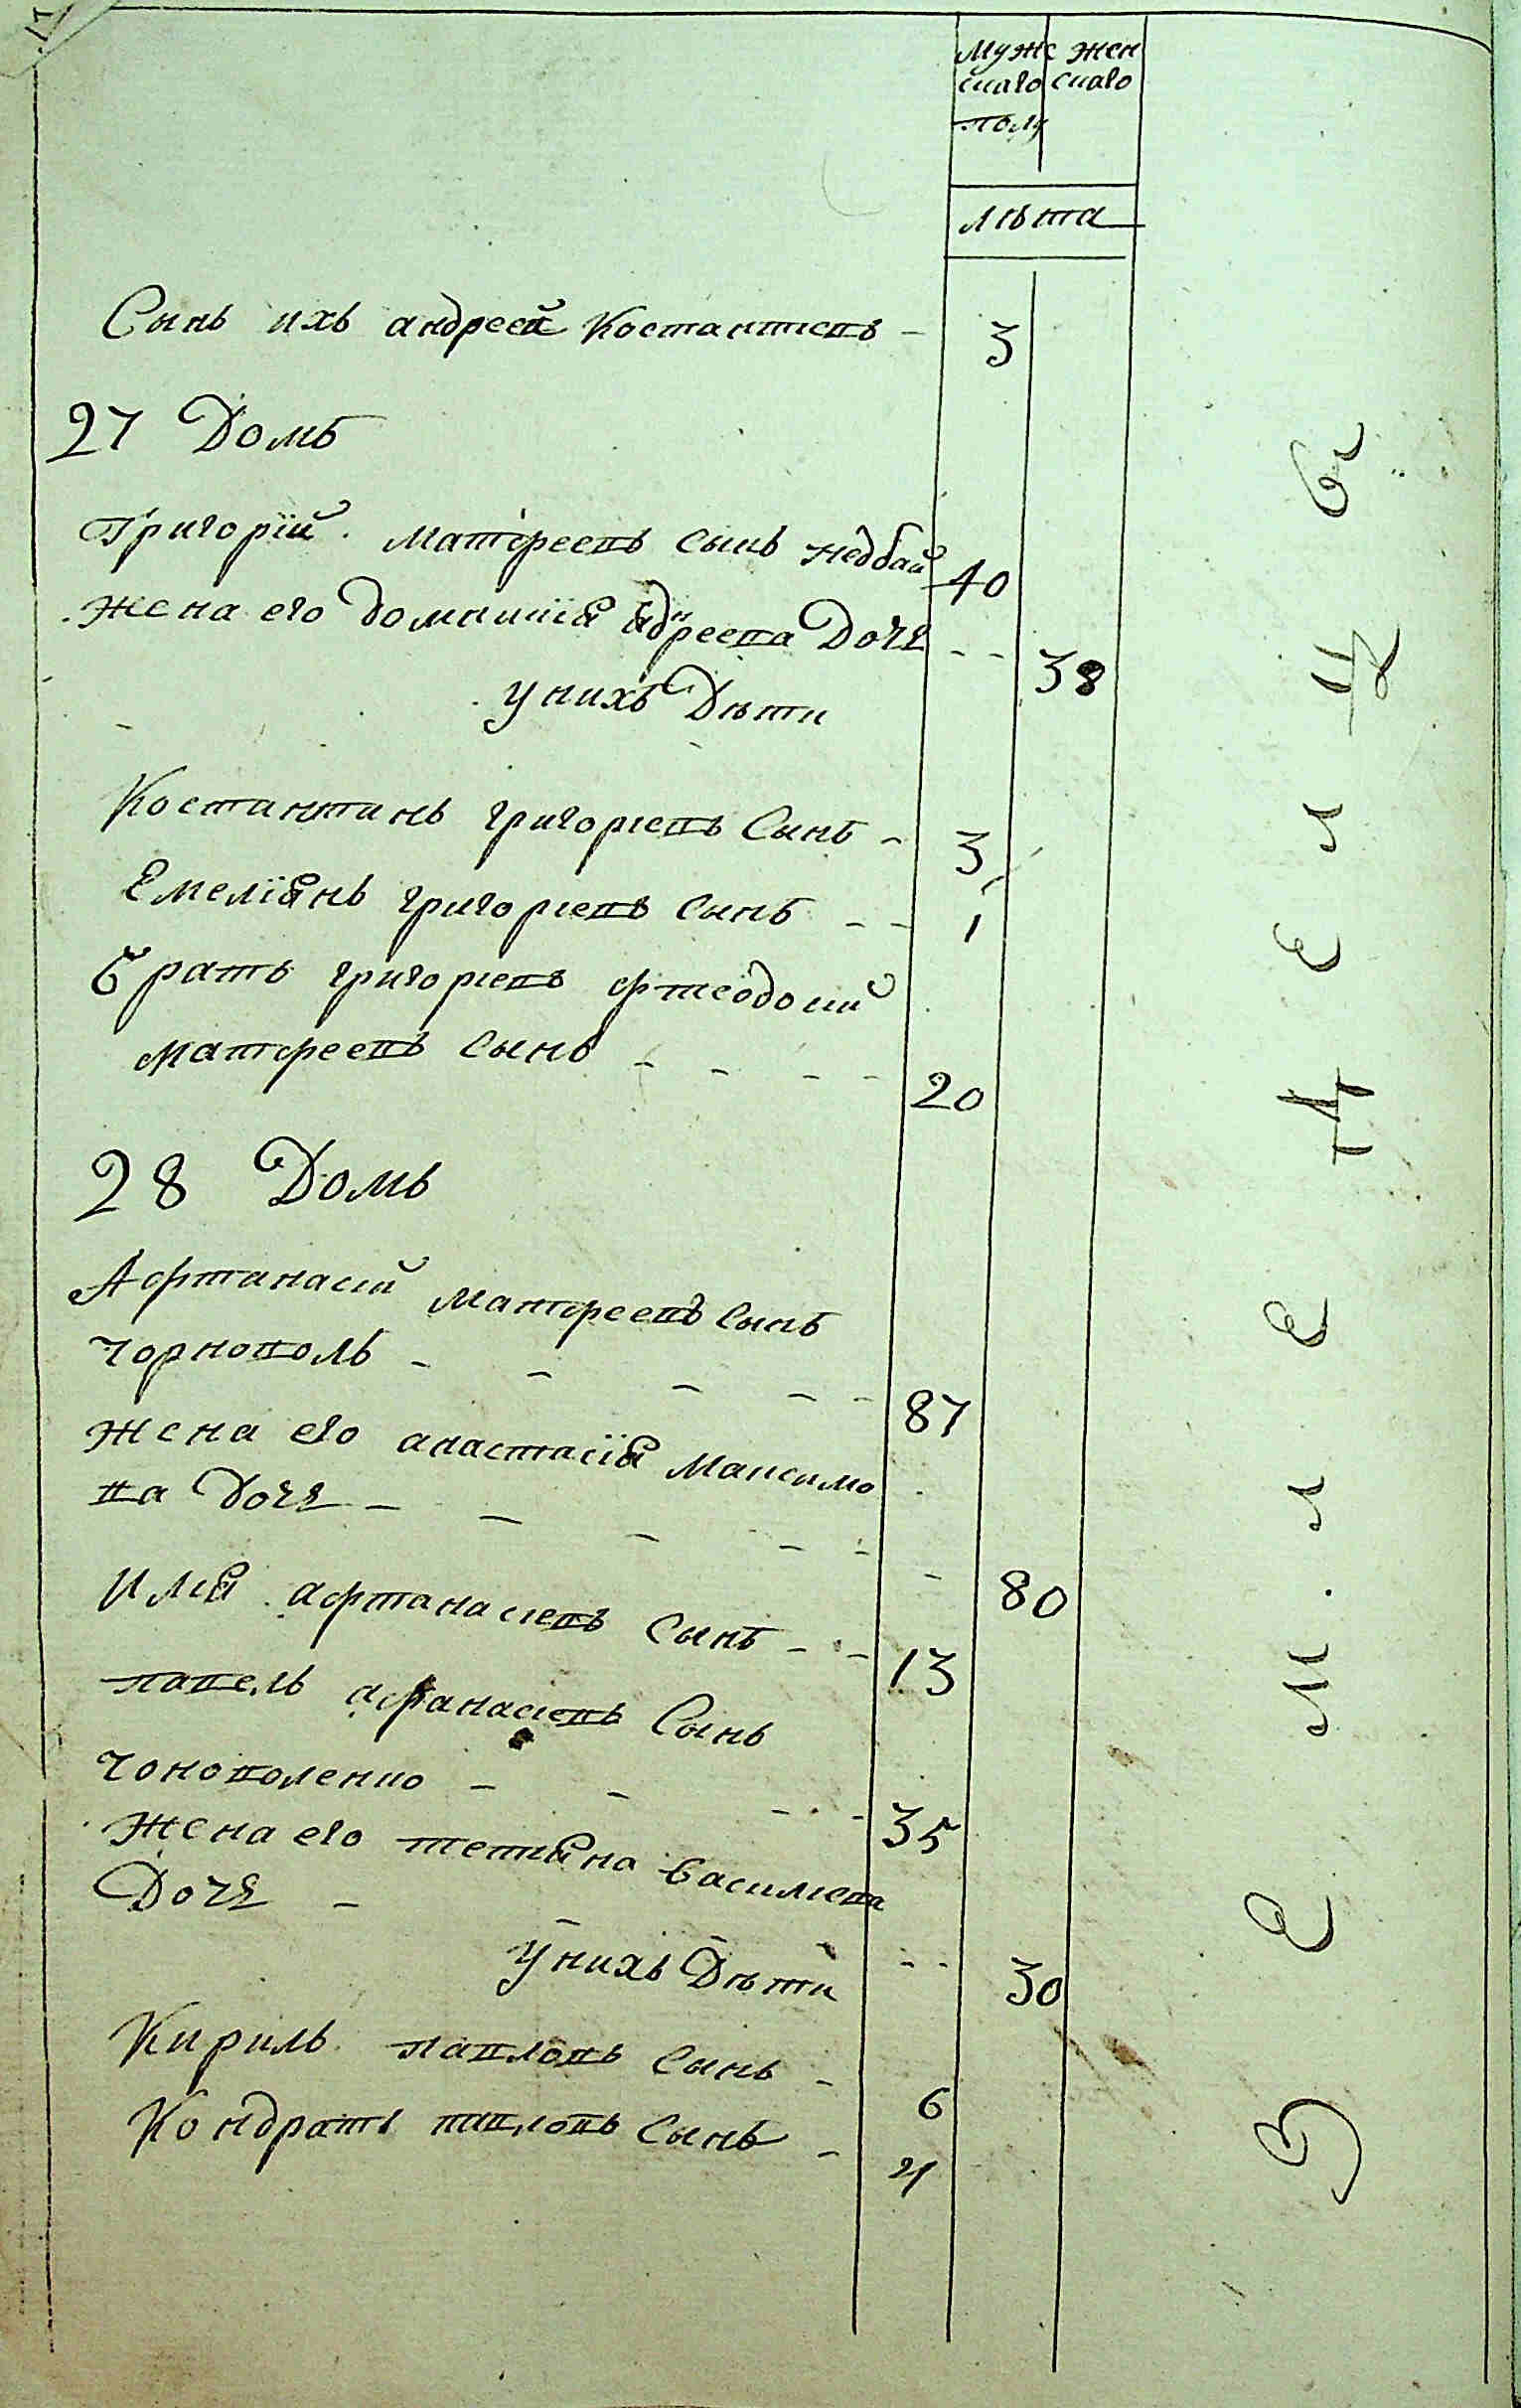 Муже жен
скаго скаго
полу
лѣта
Сынъ ихъ андрей Костантиевъ - 3
27 Домъ
Григорій Матфеевъ сынъ недбай 40
жена его домникія андреева Дочь - - 38
у нихъ Дѣти
Костантинъ григориевъ Сынъ - 3
Емеліянъ григориевъ сынъ - - 1
братъ григориевъ фтеодосий
Матфеевъ сынъ - - - - 20
28 Домъ
Афтанасий Матфеевъ Сынъ
Чорноволъ - - - - - 87
жена его анастасія Максимо
ва Дочь - - - - - - 80
Илия афтанасиевъ Сынъ - - - 13
павелъ афанасиевъ Сынъ
Чоноволенко - - - - - 35
жена его тетияна василиева
Дочь - - - - - 30
у нихъ Дѣти
Кирилъ павловъ сынъ - 6
Кондратъ павловъ Сынъ - 4